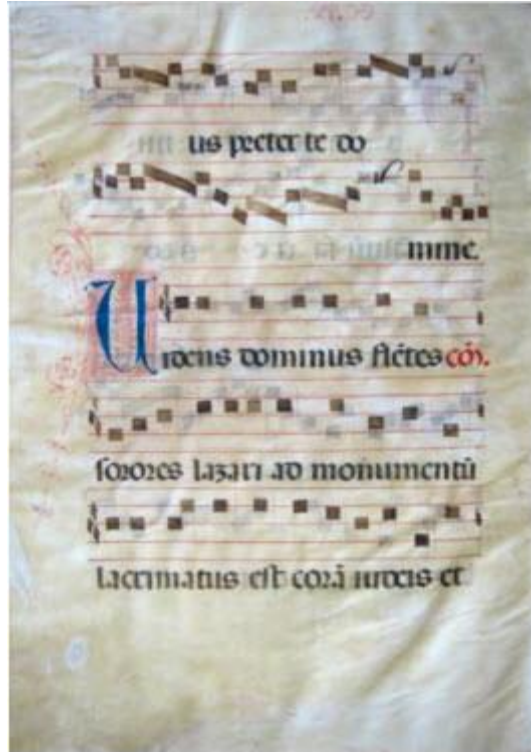 us preter te do
mine.
Uidens dominus flētes cō.
sorores lazari ad monumentū
lacrimatus est corā iudeis et